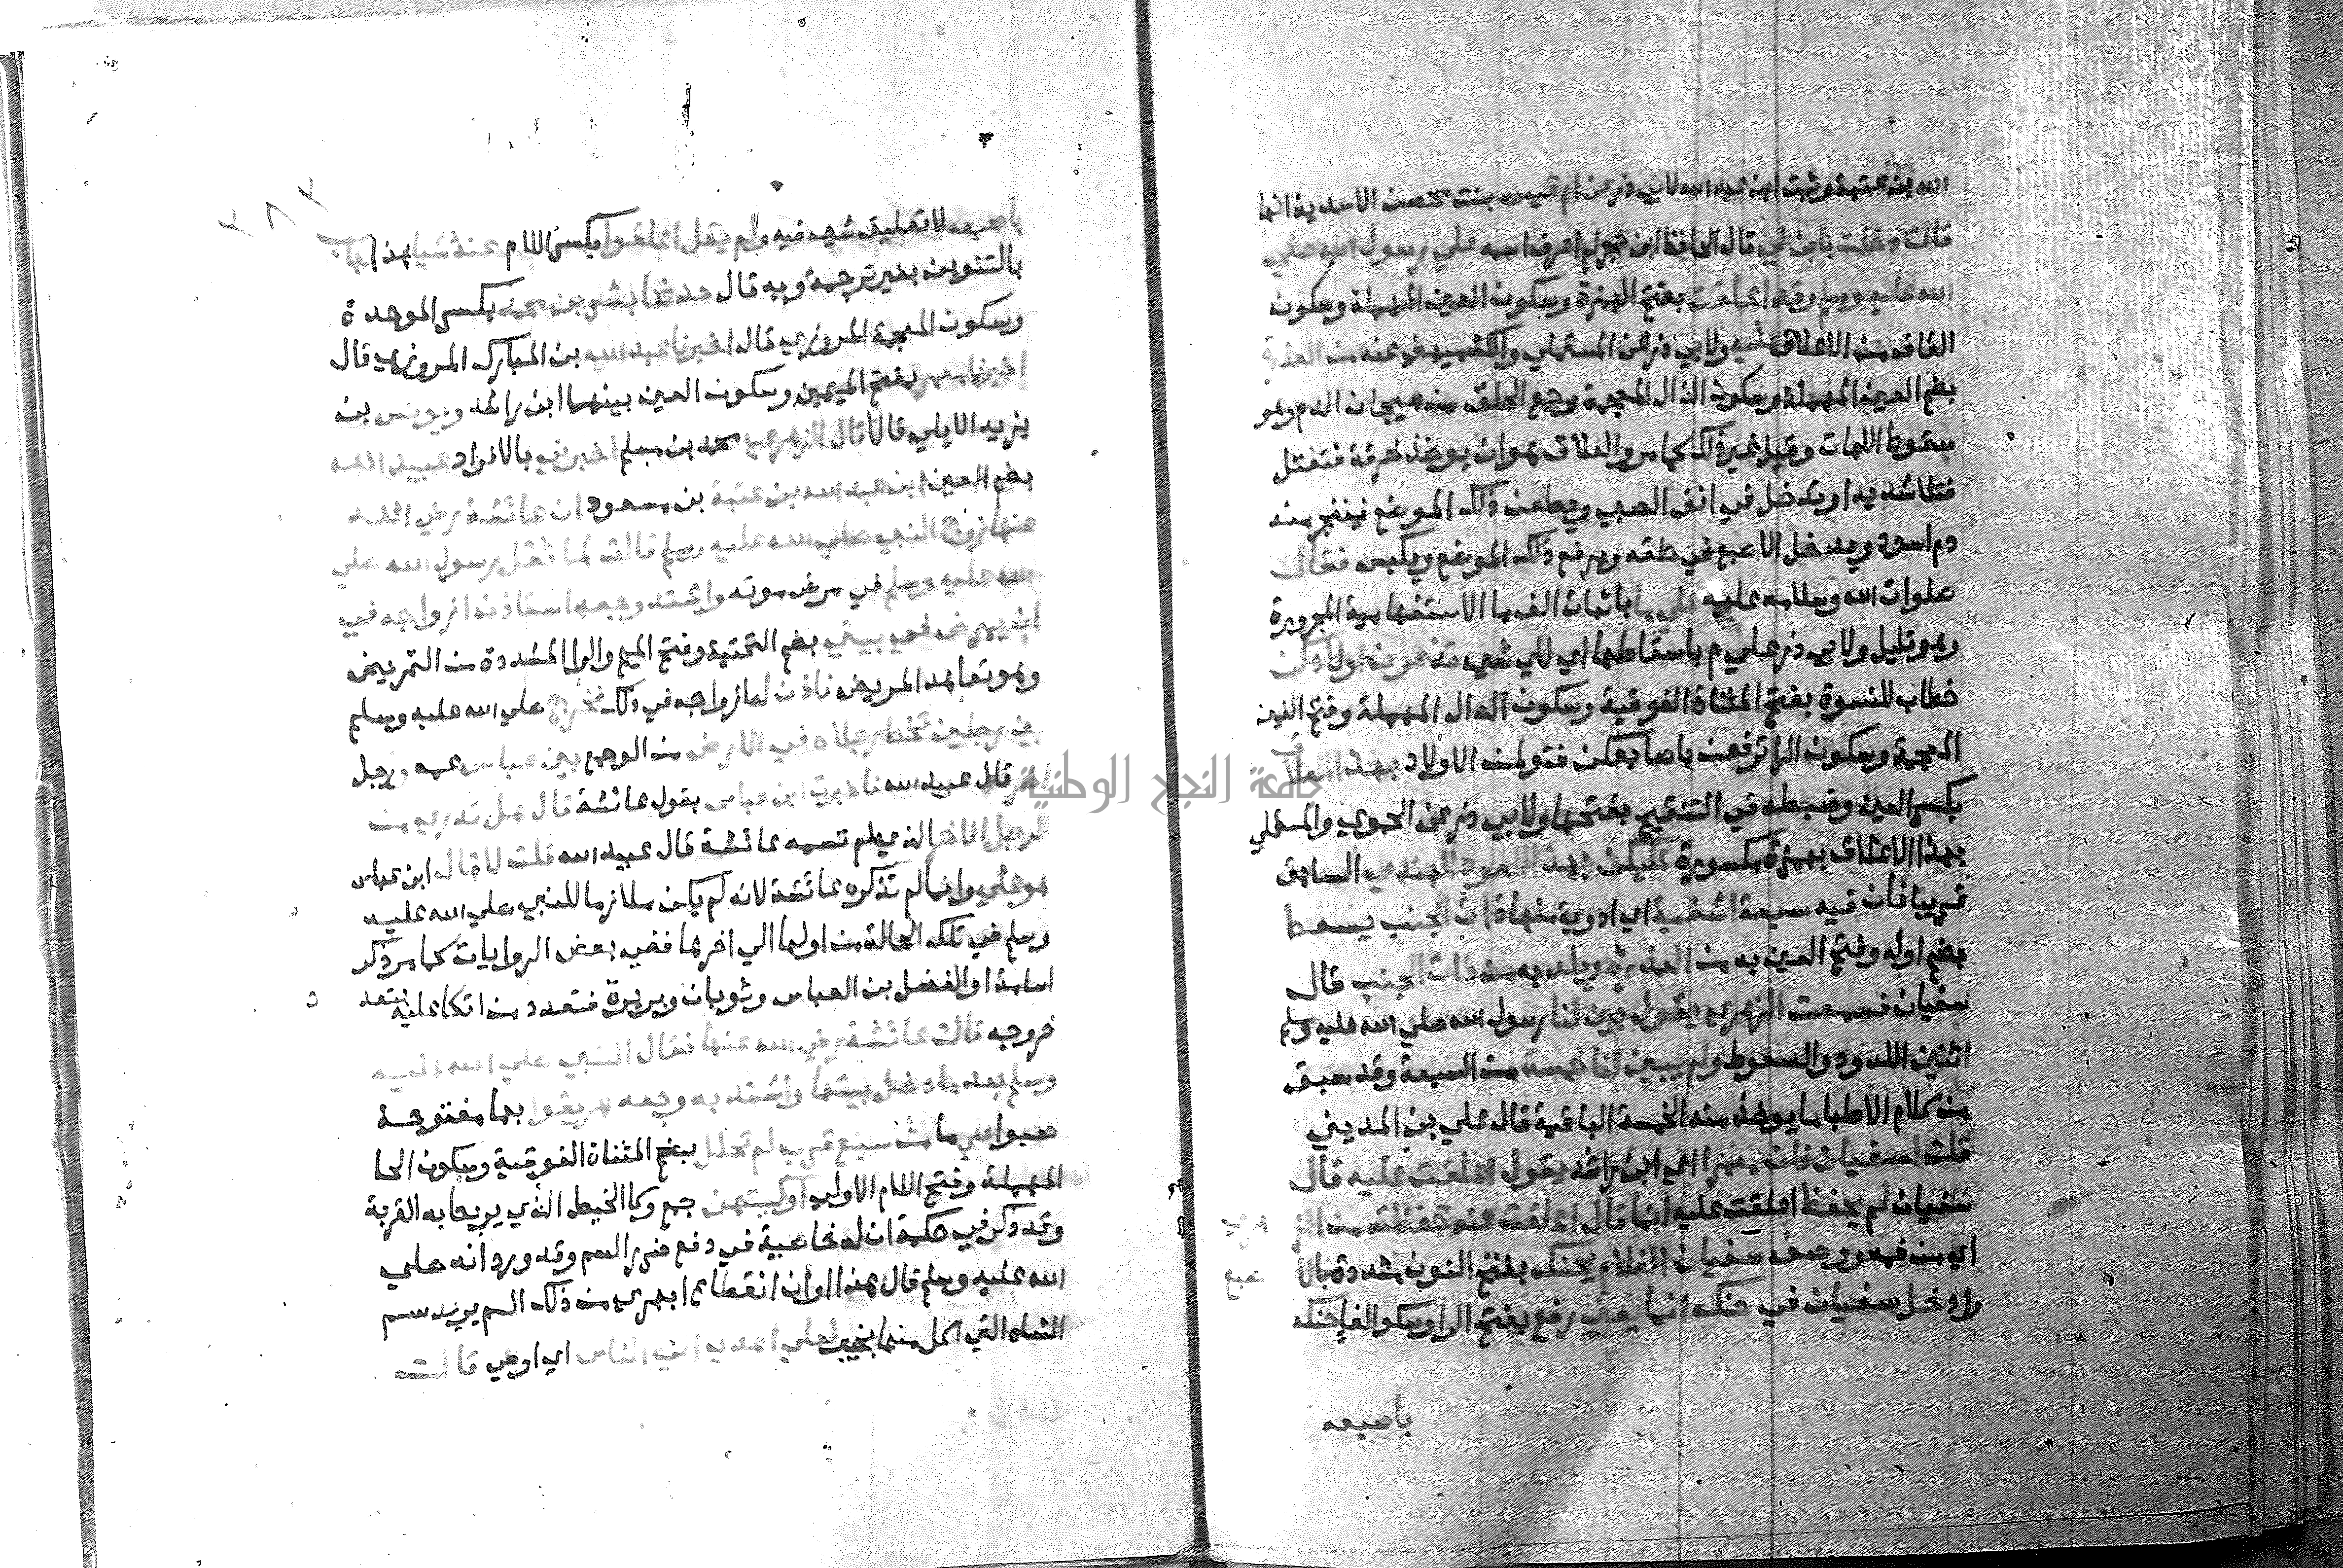 الله بن عتبة وثبت ابن عبد الله لابي ذر عن ام قيس بنت محصن الاسدية انها
قالت دخلت بابن لي قال الحافظ ابن حجر لم اعرف اسمه علي رسول الله صلي
الله عليه وسلم وقد اعلقت بفتح الهمزة وسكون العين المهملة وسكون
القاف من الاعلاق عليه ولابي ذر عن المستملي والكشميهني عنه من العذرة
بضم العين المهملة وسكون الذال المعجمة وجع الحلق من هيجان الدم وهو
سقوط اللهات وقيل غير ذلك كما مر والعلاق هو ان يوخذ خرقة فتفتل
فتلا شديدا وتدخل في انف الصبي ويطعن ذلك الموضع فينفجر منه
دم اسود ويدخل الاصبع في حلقه ويرفع ذلك الموضع ويكبس فقال
صلوات الله وسلامه عليه علي ما باثبات الف ما الاستفهامية المجرورة
وهو قليل ولابي ذر علي م باسقاطها اي لاي شي تدغرن اولادكن
خطاب للنسوة بفتح المثناة الفوقية وسكون الدال المهملة وفتح الغين
المعجمة وسكون الرا ترفعن باصابعكن فتولمن الاولاد بهذا العلاق
بكسر العين وضبطه في التنقيح بفتحها ولابي ذر عن الحموي والمستملي
بهذا الاعلاق بهمزة مكسورة عليكن بهذا العود الهندي السابق
قريبا فان فيه سبعة اشفية اي ادوية منها ذات الجنب يسعط
بضم اوله وفتح العين به من العذرة ويلد به من ذات الجنب قال
سفيان فسمعت الزهري يقول بين لنا رسول الله صلي الله عليه وسلم
اثنين اللدود والسعوط ولم يبين لنا خمسة من السبعة وقد سبق
من كلام الاطبا ما يوخذ منه الخمسة الباقية قال علي بن المديني
قلت لسفيان فان معمرا اي ابن راشد يقول اعلقت عليه قال
سفيان لم يحفظ اعلقت عليه انما قال اعلقت عنه حفظته من الزهري
اي من فيه ووصف سفيان الغلام يحنك بفتح النون مشددة بالاصبع
وادخل سفيان في حنكه انما يعني رفع بفتح الرا وسكو الفا حنكه
باصبعه
٢٨٣
باصبعه لا تعليق شي فيه ولم يقل اعلقوا بكسر اللام عنه شيا هذا باب
بالتنوين بغير ترجمة وبه قال حدثنا بشر بن محمد بكسر الموحدة
وسكون المعجمة المروزي قال اخبرنا عبد الله بن المبارك المروزي قال
اخبرنا معمر بفتح الميمين وسكون العين بينهما ابن راشد ويونس بن
يزيد الايلي قالا قال الزهري محمد بن مسلم اخبرني بالافراد عبيد الله
بضم العين ابن عبد الله بن عتبة بن مسعود ان عائشة رضي الله
عنها زوج النبي صلي الله عليه وسلم قالت لما ثقل رسول الله صلي
الله عليه وسلم في مرض موته واشتد وجعه استاذن ازواجه في
ان يمرض في بيتي بضم التحتية وفتح الميم والرا المشددة من التمريض
وهو تعاهد المريض فاذن له ازواجه في ذلك فخرج صلي الله عليه وسلم
بين رجلين تخط رجلاه في الارض من الوجع بين عباس عمه ورجل
اخر قال عبيد الله فاخبرت ابن عباس بقول عائشة قال هل تدري من
الرجل الاخر الذي لم تسمه عائشة قال عبيد الله قلت لا قال ابن عباس
هو علي وانما لم تذكره عائشة لانه لم يكن ملازما للنبي صلي الله عليه
وسلم في تلك الحالة من اولها الي اخرها ففي بعض الروايات كما مر ذكر
اسامة او الفضل بن العباس وثوبان وبريرة فتعدد من اتكا عليه فتعدد
خروجه قالت عائشة رضي الله عنها فقال النبي صلي الله عليه
وسلم بعد ما دخل بيتها واشتد به وجعه هريقوا بها مفتوحة
صبوا علي ما من سبع قرب لم تحلل بضم المثناة الفوقية وسكون الحا
المهملة وفتح اللام الاولي اوكيتهن جمع وكا الخيط الذي يربط به القربة
وقد ذكر في حكمة ان له خاصية في دفع ضرر السم وقد ورد انه صلي
الله عليه وسلم قال هذا اوان انقطاع ابهري من ذلك السم يريد سم
الشاه التي اكل منها بخيبر لعلي اعهد الي الناس اي اوصي قالت
جامعة النجاح الوطنية